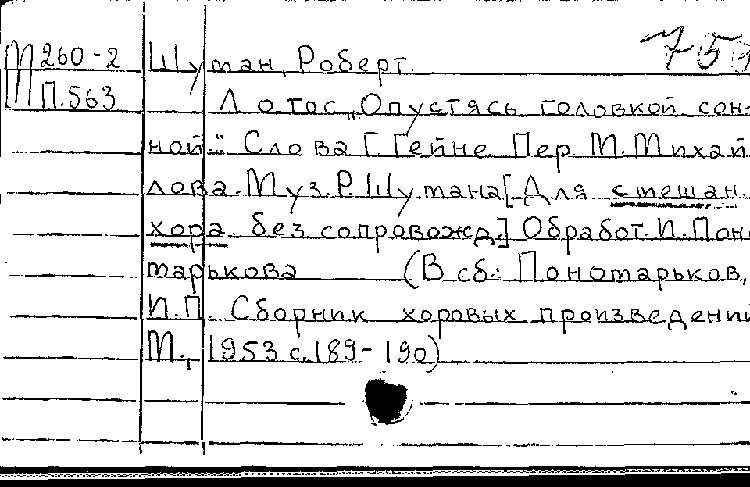 М 260-2 Шуман, Роберт. 75
П.563 Лотос „Опустясь головкой сон-
ной". Слова Г. Гейне Пер М. Михай
лова. Муз. Р. Шумана [Для смешан.
хора без сопровожд.] Обработ. И. Поно
тарькова (В сб.: Понотарьков,
И.П. Сборник хоровых произведений
М., 1953 с. 189-190)